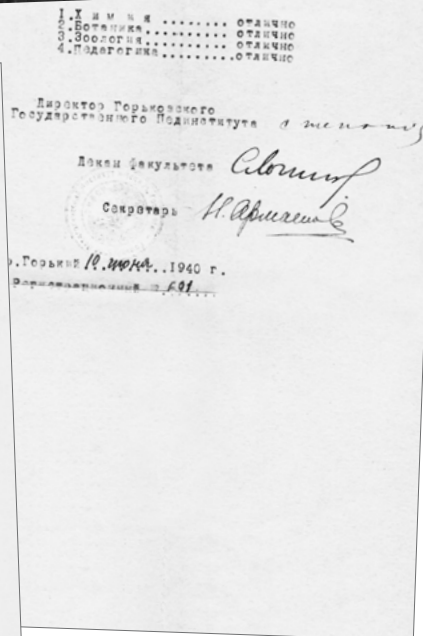 1.Х и м и я ........ отлично
2.Ботаника.......... отлично
3.Зоология.......... отлично
4.Педагогика.........отлично
Директор Горьковского
Государственного Пединститута
Декан факультета
Секретарь Н.
г.Горький 10 июня..1940 г.
Регистрационный № 691